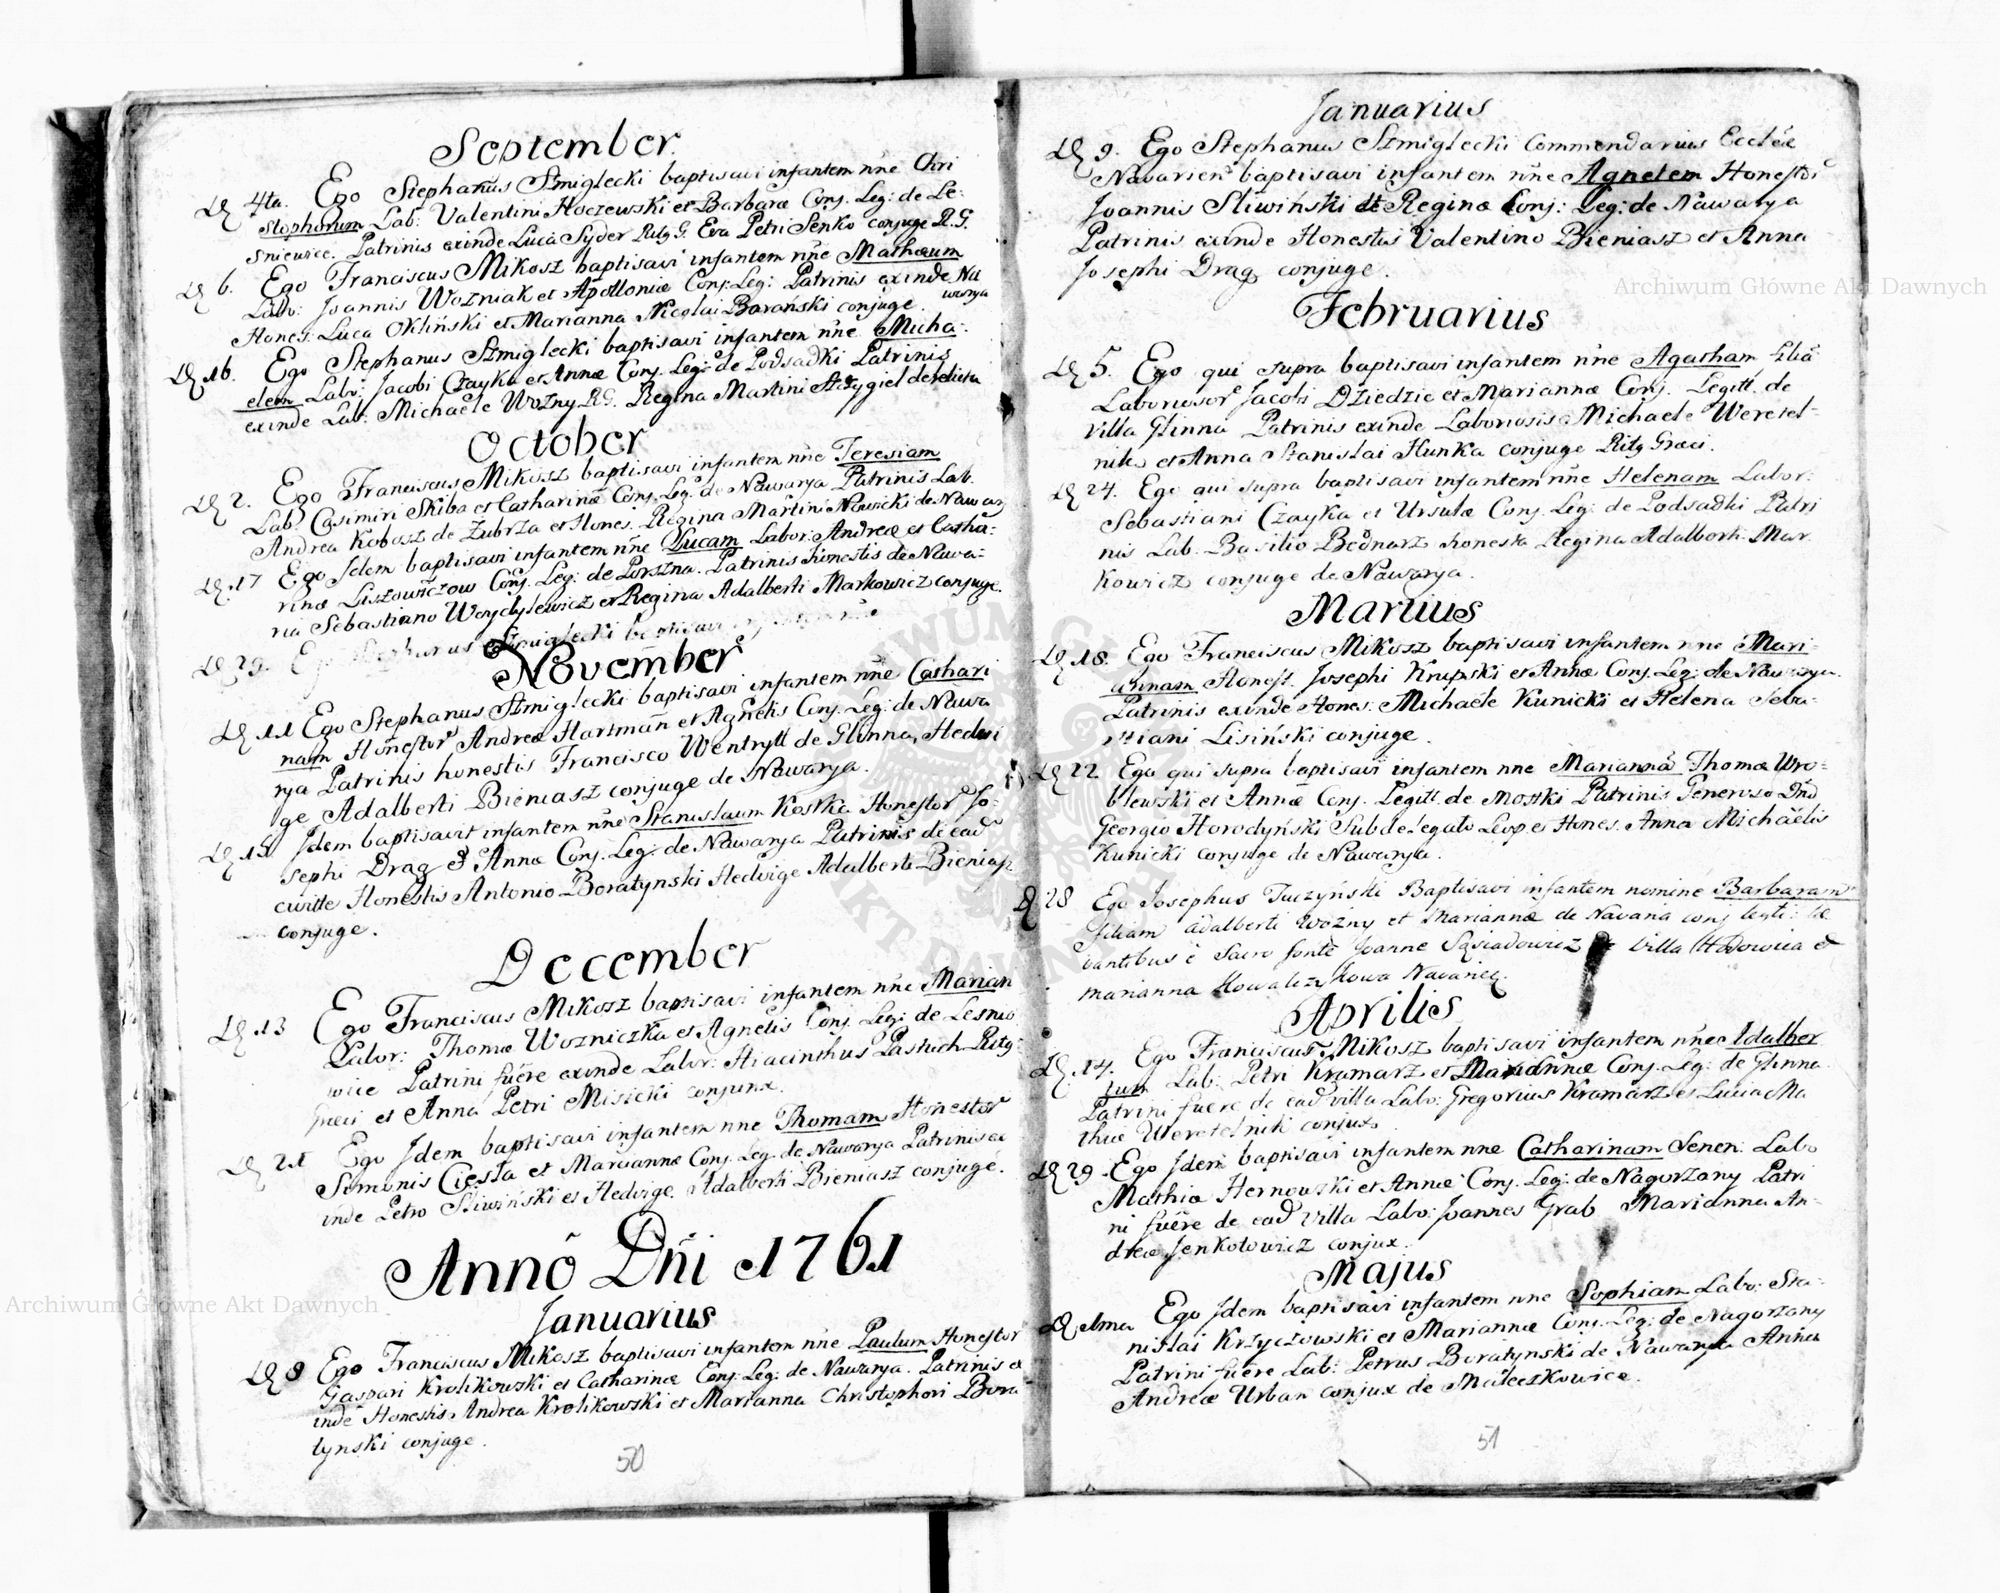 September
D 4ta. Ego Stephanus Szmiglecki baptisavi infantem nne Chri
stophorum Lab: Valentini Hoczewski et Barbaræ Conj. Leg: de Le:
sniewice. Patrinis exinde Luca Syder Ritg G. Eva Petri Senko conjuge R.G.
D 6. Ego Franciscus Mikosz baptisavi infantem nne Mathæum
Labo: Joannis Wozniak et Apolloniæ Conj: Leg: Patrinis exinde Na
warya
Hones: Luca Okliński et Marianna Nicolai Barański conjuge.
D 16. Ego Stephanus Szmiglecki baptisavi infantem nne Micha:
elem Labo: Jacobi Czayka et Annæ Conj. Leg: de Podsadki Patrinis
exinde Lab: Michaele Wozny R.G. Regina Martini Strzygiel derelicta
October
D 2. Ego Franciscus Mikosz baptisavi infantem nne Teresiam
Lab: Casimiri Skiba et Catharinæ Conj. Leg: de Nawarya Patrinis Lab.
Andrea Kobosz de Zubrza et Hones. Regina Martini Nowicki de Nawary
D 17 Ego Idem baptisavi infantem nne Lucam Labor: Andreæ et Catha:
rinæ Liszowiczow Conj. Leg: de Porszna. Patrinis honestis de Nawa:
ria Sebastiano Weydylewicz et Regina Adalberti Markowicz conjuge.
D 29. Ego Stephanus Szmiglecki baptisavi infantem nne
November
D 11 Ego Stephanus Szmiglecki baptisavi infantem nne Cathari
nam Honestor Andreæ Hartman et Agnetis Conj. Leg: de Nawa
rya Patrinis honestis Francisco Wentrytt de Glinna, Hedwi
ge Adalberti Bieniasz conjuge de Nawarya.
D 15 Idem baptisavit infantem nne Stanislaum Kostka Honestor Jo:
sephi Drag & Annæ Conj. Leg: de Nawarya Patrinis de ead
civitte Honestis Antonio Boratynski Hedvige Adalberti Bieniasz
conjuge.
December
D 13 Ego Franciscus Mikosz baptisavi infantem nne Marian
Labor: Thomæ Wozniczka et Agnetis Conj. Leg: de Lesnio
wice Patrini fuere exinde Labor: Hiacinthus Paskich Ritg
Græci et Anna Petri Misicki conjunx.
D 21 Ego Idem baptisavi infantem nne Thomam Honestor
Simonis Ciesla et Mariannæ Conj. Leg. de Nawarya Patrinis ex
inde Petro Sliwiński et Hedvige Adalberti Bieniasz conjuge.
Anno Dni 1761
Januarius
D 8 Ego Franciscus Mikosz baptisavi infantem nne Paulum Honestor
Gaspari Krolikowski et Catharinæ Conj. Leg: de Nawarya. Patrinis ex
inde Honestis Andrea Krolikowski et Marianna Christophori Bora
tynski conjuge.
50
Januarius
D 9. Ego Stephanus Szmiglecki Commendarius Ecclæ
Navarien baptisavi infantem nne Agnetem Honestor
Joannis Sliwiński et Reginæ Conj: Leg: de Nawarya
Patrinis exinde Honestis Valentino Bieniasz et Anna
Josephi Drag conjuge.
Februarius
D 5. Ego qui supra baptisavi infantem nne Agatham filiã
Laboriosor Jacobi Dziedzic et Mariannæ Conj. Legitt. de
villa Glinna Patrinis exinde Laboriosis Michaele Weretel-
nik et Anna Stanislai Hunka conjuge Ritg Græci.
D 24. Ego qui supra baptisavi infantem nne Helenam Labor:
Sebastiani Czayka et Ursulæ Conj. Leg: de Podsadki Patri
nis Lab. Basilio Bednarz honesta Regina Adalberti Mar
kowicz conjuge de Nawarya.
Martius
D 18. Ego Franciscus Mikosz baptisavi infantem nne Mari-
annam Honest. Josephi Krupski et Annæ Conj. Leg: de Nawarya.
Patrinis exinde Hones: Michaele Kunicki et Helena Seba-
stiani Lisiński conjuge.
D 22 Ego qui supra baptisavi infantem nne Mariannã Thomæ Wro-
blewski et Annæ Conj. Legitt. de Mostki Patrinis Generoso Dno
Georgio Horodyński Subdelegato Leop. et Hones. Anna Michaelis
Kunicki conjuge de Nawarya.
D 28 Ego Josephus Tuczyński Baptisavi infantem nomine Barbaram
filiam Adalberti Wozny et Mariannæ de Navaria conj legti: le
vantibus è Sacro fonte Joanne Sąsiadowicz de Villa Hodowica et
Marianna Kowalczykowa Navariez.
Aprilis
D 14. Ego Franciscus Mikosz baptisavi infantem nne Adalber
tum Lab: Petri Kramarz et Mariannæ Conj. Leg: de Glinna
Patrini fuere de ead villa Labo: Gregorius Kramarz et Lucia Ma
thiæ Weretelnik conjux.
D 29. Ego Idem baptisavi infantem nne Catharinam Senen. Labo
Mathiæ Hernowski et Annæ Conj. Leg: de Nagorzany Patri
ni fuere de ead villa Labo: Joannes Grab Marianna An-
dreæ Jenkotowicz conjux.
Majus
D 1ma Ego Idem baptisavi infantem nne Sophiam Labo: Sta:
nislai Krzyczowski et Mariannæ Conj. Leg: de Nagorzany
Patrini fuere Lab: Petrus Boratynski de Nawarya Anna
Andreæ Urban conjux de Maleczkowice.
51
Archiwum Główne Akt Dawnych
Archiwum Główne Akt Dawnych